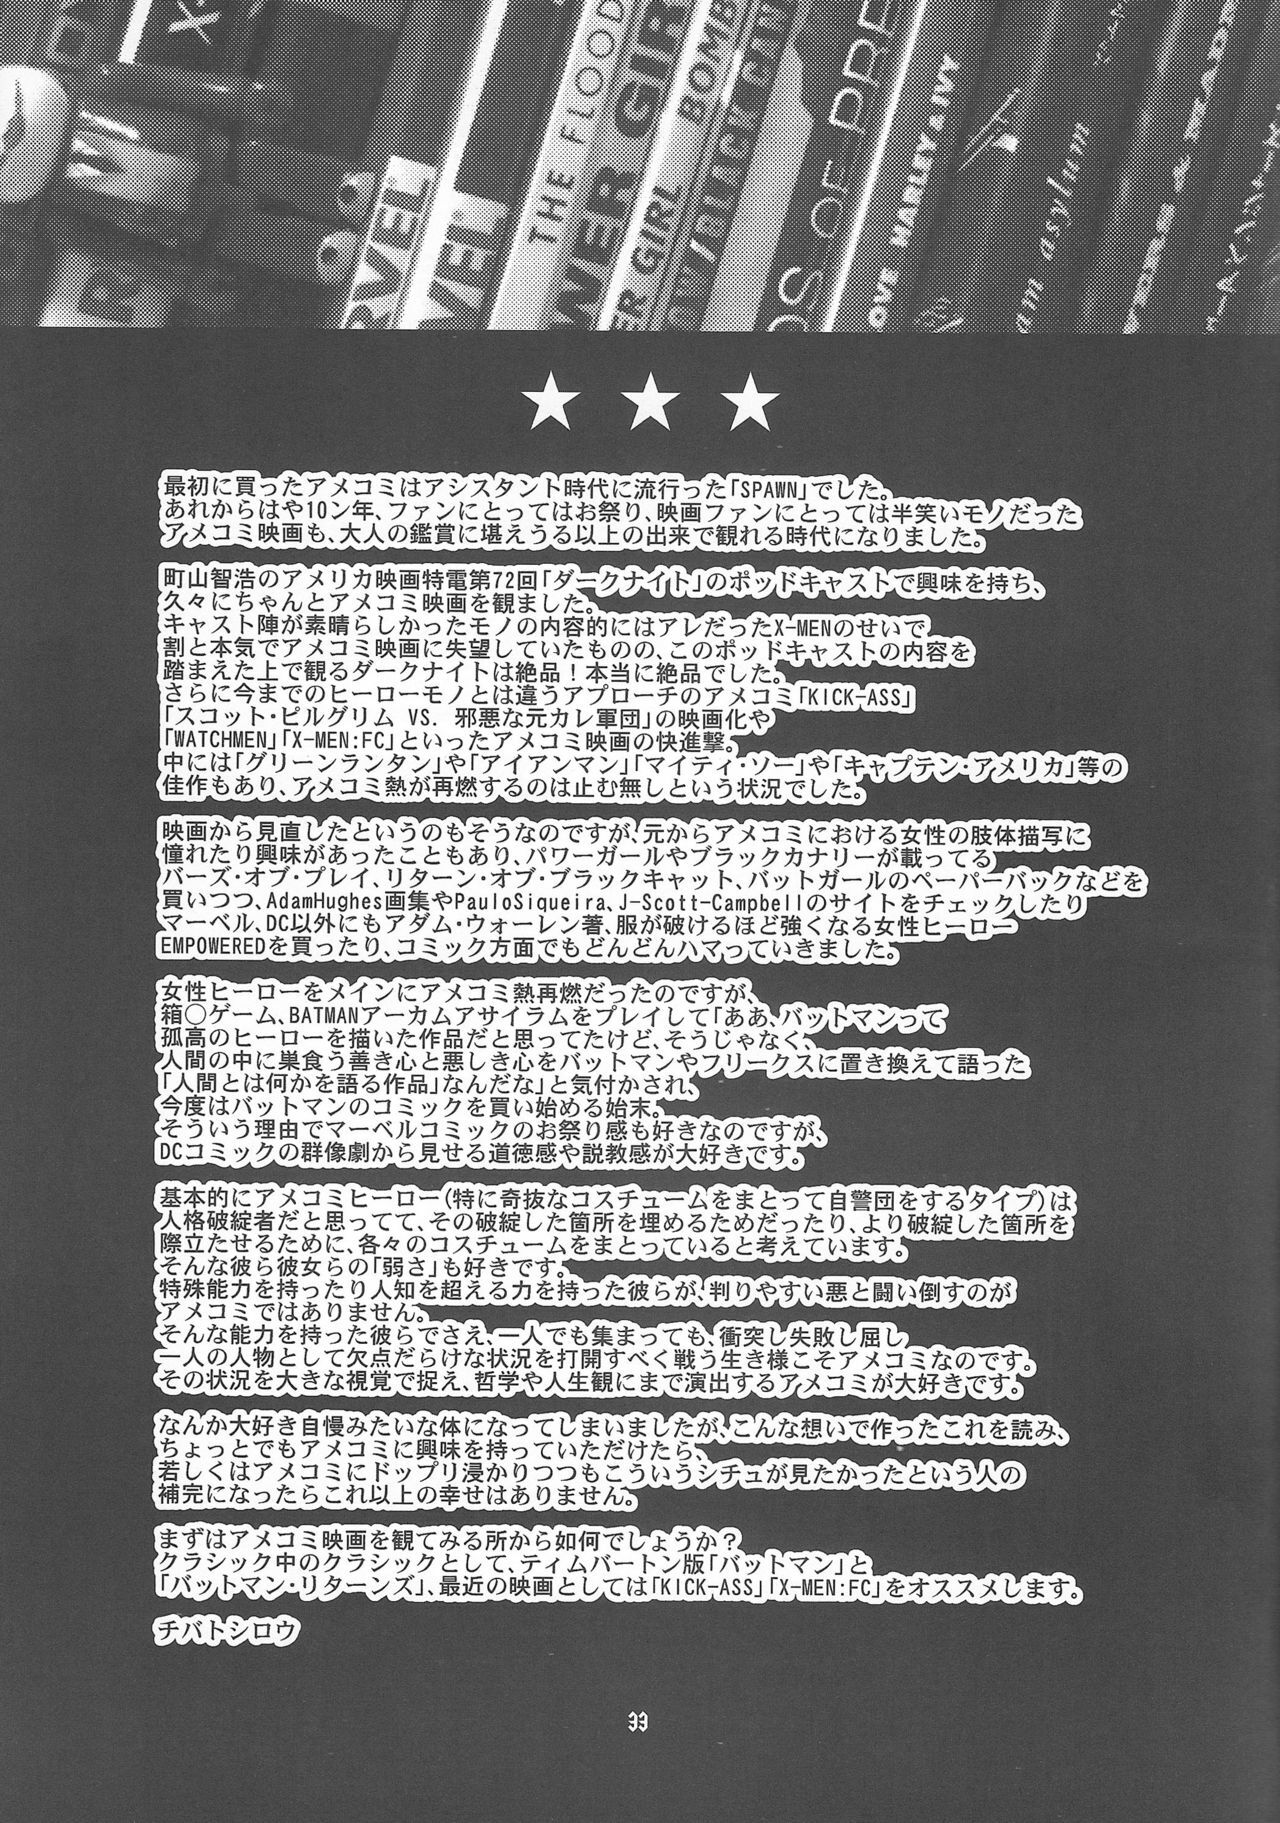 THE FLOOD
POWER GIRL
POWER GIRL BOMB
BLACK CAN
OF PRE
LOVE HARLEY & IVY
am asylum
最初に買ったアメコミはアシスタント時代に流行った「SPAWN」でした。
あれからはや10ン年、ファンにとってはお祭り、映画ファンにとっては半笑いモノだった
アメコミ映画も、大人の鑑賞に堪えうる以上の出来で観れる時代になりました。
町山智浩のアメリカ映画特電第72回「ダークナイト」のポッドキャストで興味を持ち、
久々にちゃんとアメコミ映画を観ました。
キャスト陣が素晴らしかったモノの内容的にはアレだったX-MENのせいで
割と本気でアメコミ映画に失望していたものの、このポッドキャストの内容を
踏まえた上で観るダークナイトは絶品！本当に絶品でした。
さらに今までのヒーローモノとは違うアプローチのアメコミ「KICK-ASS」
「スコット・ピルグリム VS. 邪悪な元カレ軍団」の映画化や
「WATCHMEN」「X-MEN:FC」といったアメコミ映画の快進撃。
中には「グリーンランタン」や「アイアンマン」「マイティ・ソー」や「キャプテン・アメリカ」等の
佳作もあり、アメコミ熱が再燃するのは止む無しという状況でした。
映画から見直したというのもそうなのですが、元からアメコミにおける女性の肢体描写に
憧れたり興味があったこともあり、パワーガールやブラックカナリーが載ってる
バーズ・オブ・プレイ、リターン・オブ・ブラックキャット、バットガールのペーパーバックなどを
買いつつ、AdamHughes画集やPauloSiqueira、J-Scott-Campbellのサイトをチェックしたり
マーベル、DC以外にもアダム・ウォーレン著、服が破けるほど強くなる女性ヒーロー
EMPOWEREDを買ったり、コミック方面でもどんどんハマっていきました。
女性ヒーローをメインにアメコミ熱再燃だったのですが、
箱〇ゲーム、BATMANアーカムアサイラムをプレイして「ああ、バットマンって
孤高のヒーローを描いた作品だと思ってたけど、そうじゃなく、
人間の中に巣食う善き心と悪しき心をバットマンやフリークスに置き換えて語った
「人間とは何かを語る作品」なんだな」と気付かされ、
今度はバットマンのコミックを買い始める始末。
そういう理由でマーベルコミックのお祭り感も好きなのですが、
DCコミックの群像劇から見せる道徳感や説教感が大好きです。
基本的にアメコミヒーロー(特に奇抜なコスチュームをまとって自警団をするタイプ)は
人格破綻者だと思ってて、その破綻した箇所を埋めるためだったり、より破綻した箇所を
際立たせるために、各々のコスチュームをまとっていると考えています。
そんな彼ら彼女らの「弱さ」も好きです。
特殊能力を持ったり人知を超える力を持った彼らが、判りやすい悪と闘い倒すのが
アメコミではありません。
そんな能力を持った彼らでさえ、一人でも集まっても、衝突し失敗し屈し
一人の人物として欠点だらけな状況を打開すべく戦う生き様こそアメコミなのです。
その状況を大きな視覚で捉え、哲学や人生観にまで演出するアメコミが大好きです。
なんか大好き自慢みたいな体になってしまいましたが、こんな想いで作ったこれを読み、
ちょっとでもアメコミに興味を持っていただけたら、
若しくはアメコミにドップリ浸かりつつもこういうシチュが見たかったという人の
補完になったらこれ以上の幸せはありません。
まずはアメコミ映画を観てみる所から如何でしょうか？
クラシック中のクラシックとして、ティムバートン版「バットマン」と
「バットマン・リターンズ」、最近の映画としては「KICK-ASS」「X-MEN:FC」をオススメします。
チバトシロウ
33